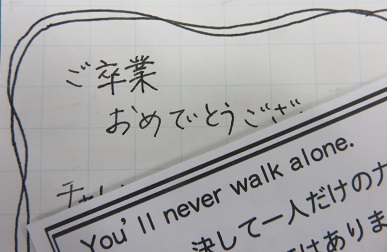 ご卒業
おめでとうござ
You'll never walk alone.
決して一人だけのナ
はありま